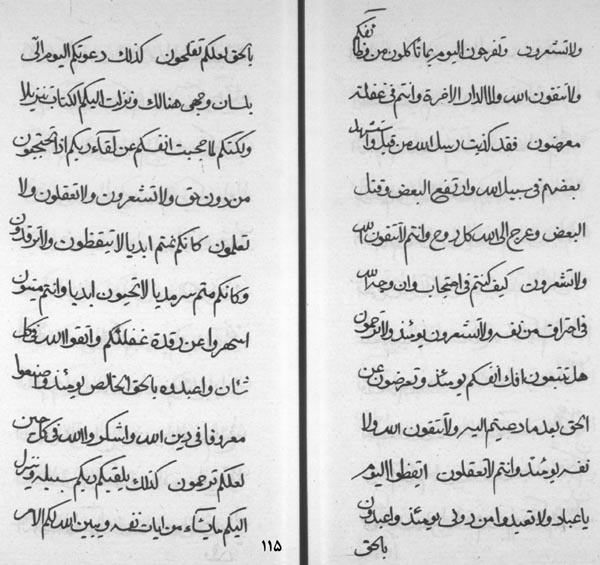 ولا تشعرون وتفرحون اليوم بما تأكلون من
ولا تتقون الله ولا الدار الاخرة وانتم فى غفلة
معرضون فقد كذبت رسل الله من قبل
بعضهم فى سبيل الله وارتفع البعض وقتل
البعض وعرج الى الله كل روح وانتم لا تتقون الله
ولا تشعرون كيف كنتم فى احتجاب وان وجه الله
فى احتراق من نفسه ولا تشعرون يومئذ ولا ترحمون
هل تتبعون افك انفسكم يومئذ وتعرضون عن
الحق بعد ما دعيتم اليه ولا تتقون الله ولا
نفسه يومئذ وانتم لا تعقلون اتيقظوا اليوم
يا عباد ولا تعبدوا من دونى يومئذ واعبدون
بالحق
بالحق لعلكم تفلحون كذلك دعوتكم اليوم الى
بلسان وجهى هنالك ونزلت اليكم الكتاب تنزيلا
ولكنكم لما حجبت انفسكم عن لقاء ربكم اذا تحتجبون
من دون حق ولا تشعرون ولا تعقلون ولا
تعلمون كانكم نمتم ابديا لا تيقظون ولا ترقدون
وكانكم متم سرمديا لا تحيون ابديا وانتم ميتون
عن رقدة غفلتكم واتقوا الله فى كل
شأن واعبدوه بالحق الخالص يومئذ واصنعوا
معروفا فى دين الله واشكروا الله فى كل حين
لعلكم ترحمون كذلك يلقيكم ربكم سبيله وينزل
اليكم ما يشاء من ايات نفسه ويبين الله لكم الامر
١١٥